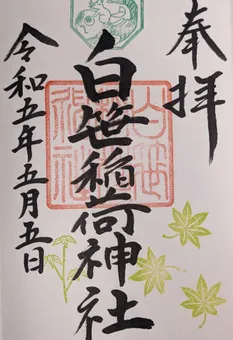 奉拝
白笹稲荷神社
令和五年五月五日